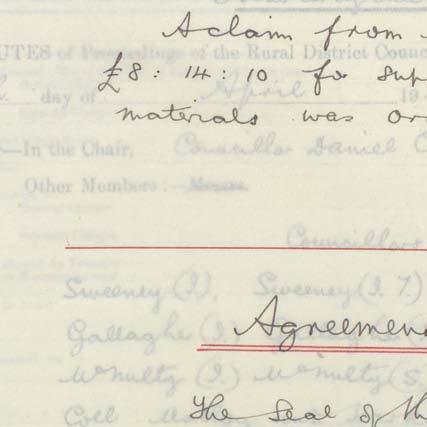 A claim from
UTES of Proceedings of the Rural District Counc
£8 : 14 : 10 for sup
day of April 19
materials was or
In the Chair, Councillor Daniel
Other Members :—
Councillors
Sweeney (J), Sweeney (J. T.)
Agreemen
Gallagher (J.)
McNulty (J.) McNulty (S.
Coll
The Seal of th